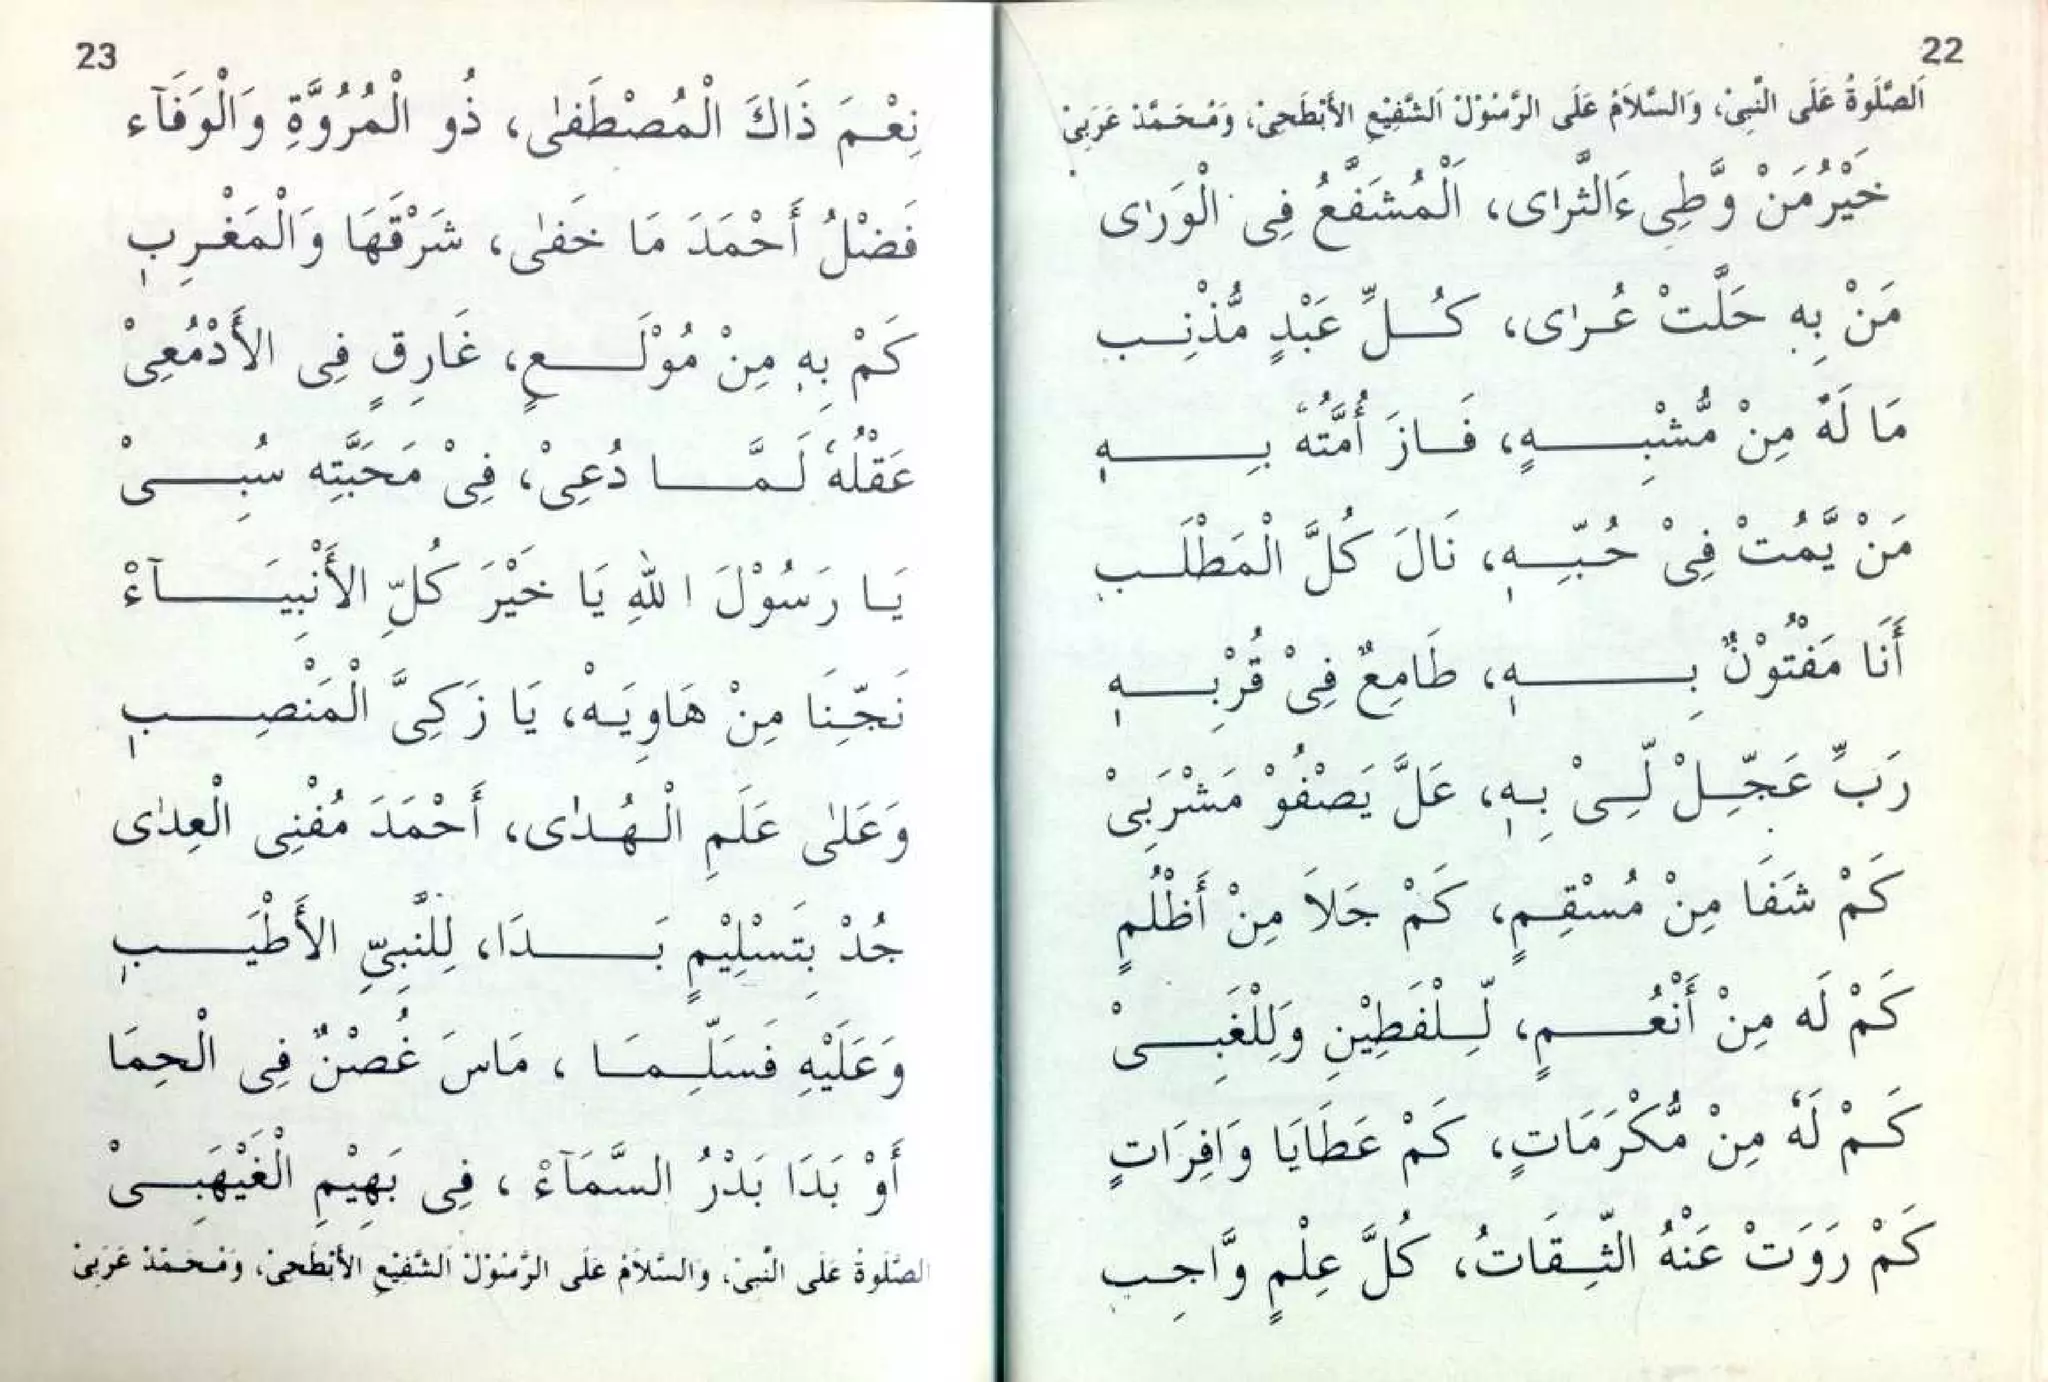 22
اَلصَّلٰوةُ عَلَى النَّبِىْ، وَالسَّلَامُ عَلَى الرَّسُوْلْ اَلشَّفِيْعِ الأَبْطَحِىْ، وَمُحَمَّدْ عَرَبِىْ
خَيْرُ مَنْ وَّطِىءَ الثَّرٰى، اَلْمُشَفَّعُ فِى الْوَرٰى
مَنْ بِهٖ حَلَّتْ عُرٰى، كُلِّ عَبْدٍ مُّذْنِبِ
مَا لَهٗ مِنْ مُّشْبِهٍ، فَازَ أُمَّتُهٗ بِهٖ
مَنْ يَّمُتْ فِىْ حُبِّهٖ، نَالَ كُلَّ الْمَطْلَبِ
أَنَا مَفْتُوْنٌ بِهٖ، طَامِعٌ فِىْ قُرْبِهٖ
رَبِّ عَجِّلْ لِّىْ بِهٖ، عَلَّ يَصْفُوْ مَشْرَبِىْ
كَمْ شَفَا مِنْ مُسْقِمٍ، كَمْ جَلَا مِنْ أَظْلُمٍ
كَمْ لَه مِنْ أَنْعُمٍ، لِّلْفَطِيْنِ وَلِلْغَبِىْ
كَمْ لَهٗ مِنْ مُّكْرَمَاتٍ، كَمْ عَطَايَا وَافِرَاتٍ
كَمْ رَوَتْ عَنْهُ الثِّقَاتُ، كُلَّ عِلْمٍ وَّاجِبِ
23
نِعْمَ ذَاكَ الْمُصْطَفٰى، ذُو الْمُرُوَّةِ وَالْوَفَآء
فَضْلُ أَحْمَدَ مَا خَفٰى، شَرْقَهَا وَالْمَغْرِبٖ
كَمْ بِهٖ مِنْ مُوْلَعٍ، غَارِقٍ فِى الأَدْمُعِىْ
عَقْلُهٗ لَمَّا دُعِىْ، فِىْ مَحَبَّتِه سُبِىْ
يَا رَسُوْلَ اللهِ يَا خَيْرَ كُلِّ الأَنْبِيَآءْ
نَجِّنَا مِنْ هَاوِيَهْ، يَا زَكِىَّ الْمَنْصِبٖ
وَعَلٰى عَلَمِ الْهُدٰى، أَحْمَدَ مُفْنِى الْعِدٰى
جُدْ بِتَسْلِيْمٍ بَدَا، لِلنَّبِىِّ الأَطْيَبٖ
وَعَلَيْهِ فَسَلِّمَا ، مَاسَ غُصْنٌ فِى الْحِمَا
أَوْ بَدَا بَدْرُ السَّمَآءْ ، فِى بَهِيْمِ الْغَيْهَبِىْ
الصَّلٰوةُ عَلَى النَّبِىْ، وَالسَّلَامُ عَلَى الرَّسُوْلْ اَلشَّفِيْعِ الأَبْطَحِىْ، وَمُحَمَّدْ عَرَبِىْ